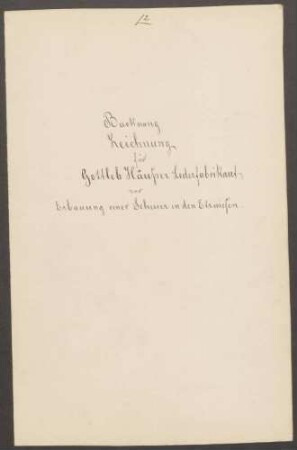 12
Backnang
Zeichnung
für
Gottlob Häußer Lederfabrikant,
zur
Erbauung einer Scheuer in den Etzwiesen.